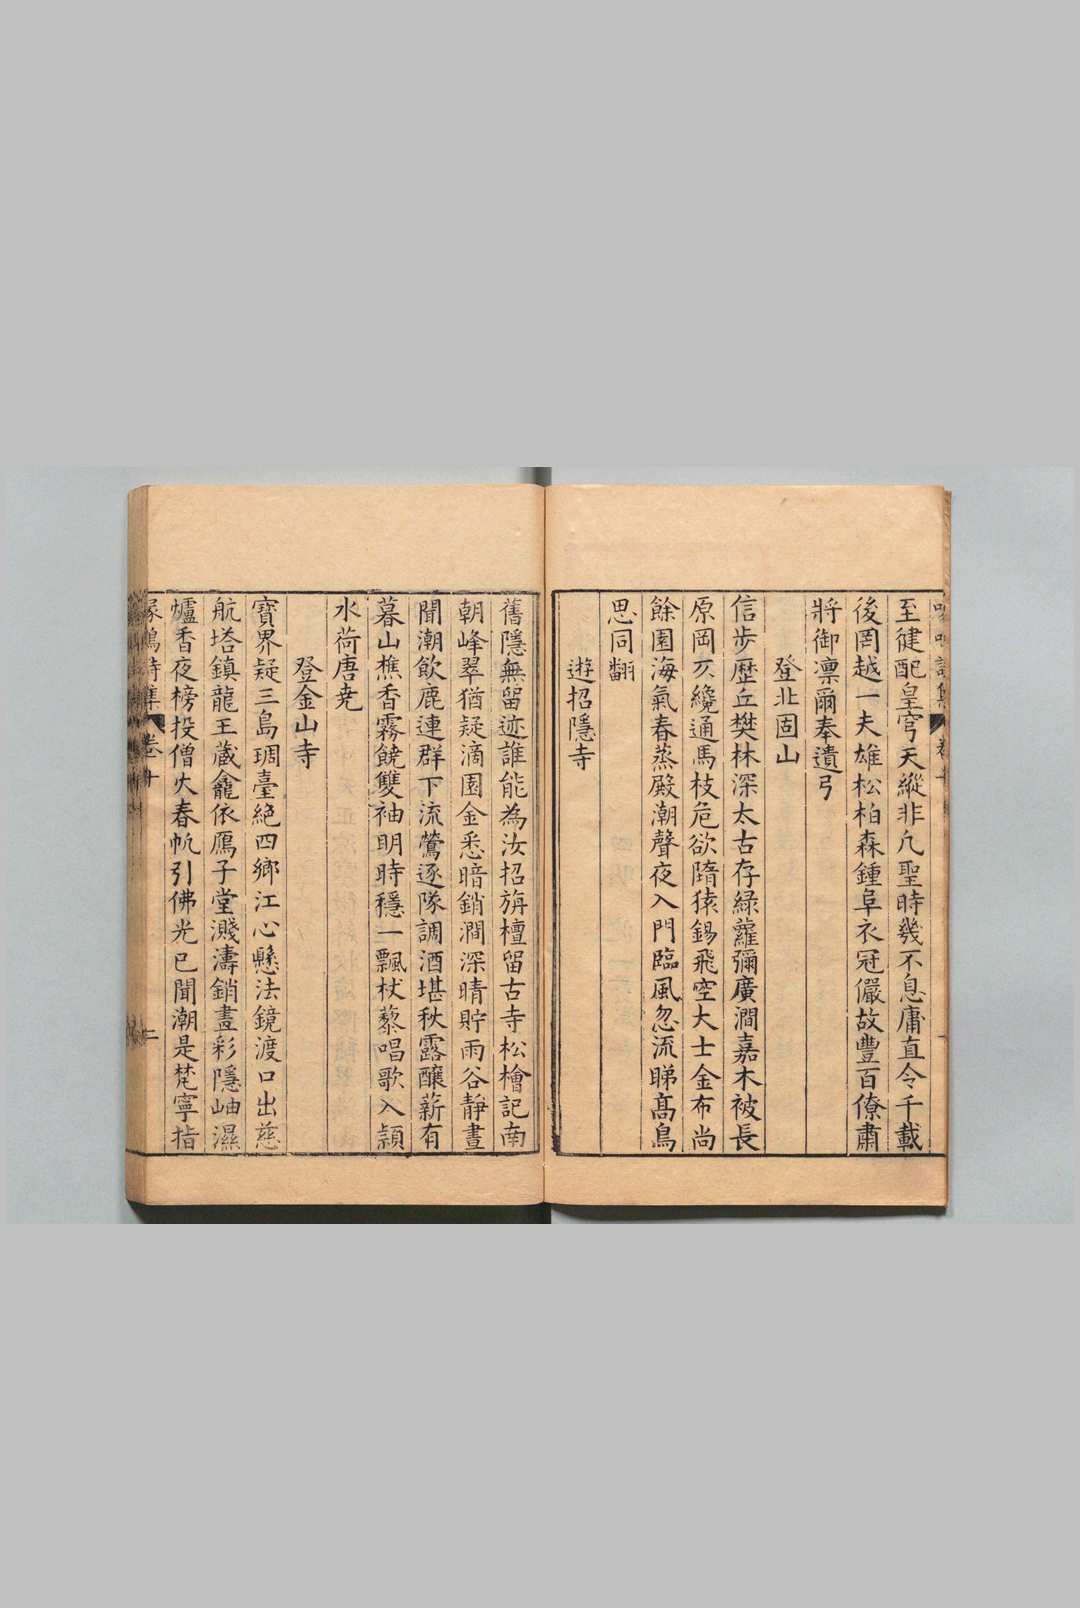 至健配皇穹天縱非凡聖時幾不息庸直令千載
後罔越一夫雄松柏森鍾阜衣冠儼故豐百僚肅
將御凛爾奉遺弓
登北固山
信步歷丘樊林深太古存綠蘿彌廣澗嘉木被長
原岡仄纔通馬枝危欲隋猿錫飛空大士金布尚
餘園海氣春蒸殿潮聲夜入門臨風忽流睇高鳥
思同翻
遊招隱寺
舊隱無留迹誰能為汝招旃檀留古寺松檜記南
朝峰翠猶疑滴園金悉暗銷澗深晴貯雨谷靜晝
聞潮飲鹿連群下流鶯逐隊調酒堪秋露釀薪有
暮山樵香霧饒雙袖明時穩一瓢杖藜唱歌入潁
水荷唐堯
登金山寺
寶界疑三島琱臺絕四鄉江心懸法鏡渡口出慈
航塔鎮龍王藏龕依鴈子堂濺濤銷畫彩隱岫濕
爐香夜榜投僧火春帆引佛光已聞潮是梵寧指
詩集 卷十 二